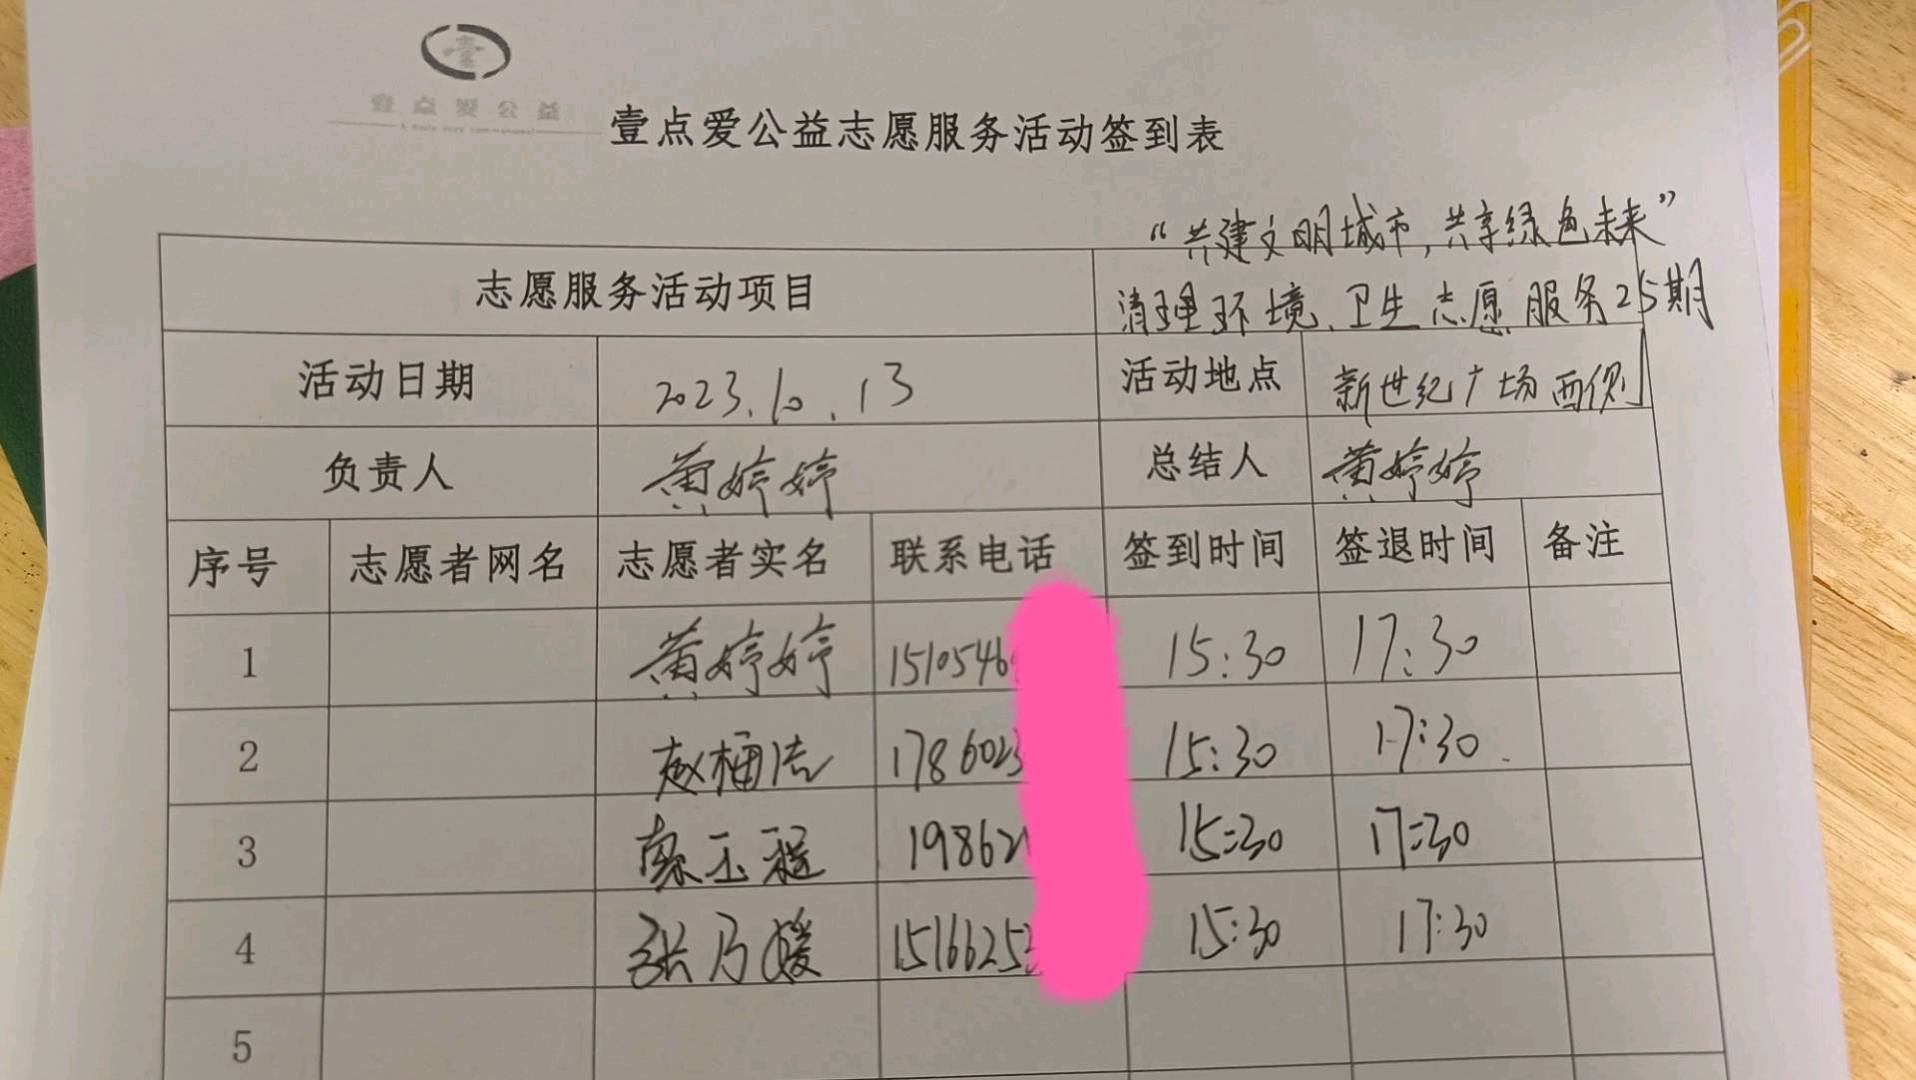 壹点爱公益
壹点爱公益志愿服务活动签到表
“共建文明城市,共享绿色未来”
志愿服务活动项目 清理环境卫生志愿服务25期
活动日期 2023.10.13 活动地点 新世纪广场西侧
负责人 黄婷婷 总结人 黄婷婷
序号 志愿者网名 志愿者实名 联系电话 签到时间 签退时间 备注
1 黄婷婷 1510546 15:30 17:30
2 赵 1786023 15:30 17:30
3 玉程 19862 15:30 17:30
4 张乃媛 1516625 15:30 17:30
5